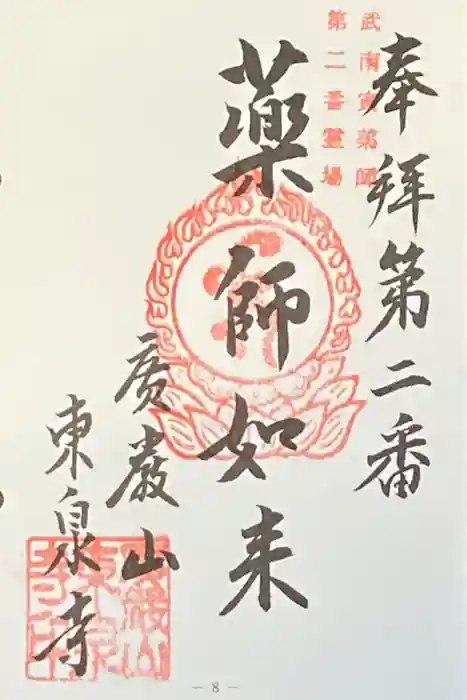 武南寅薬師
第二番霊場
奉拜第二番
薬師如来
広巌山
東泉寺
－8－